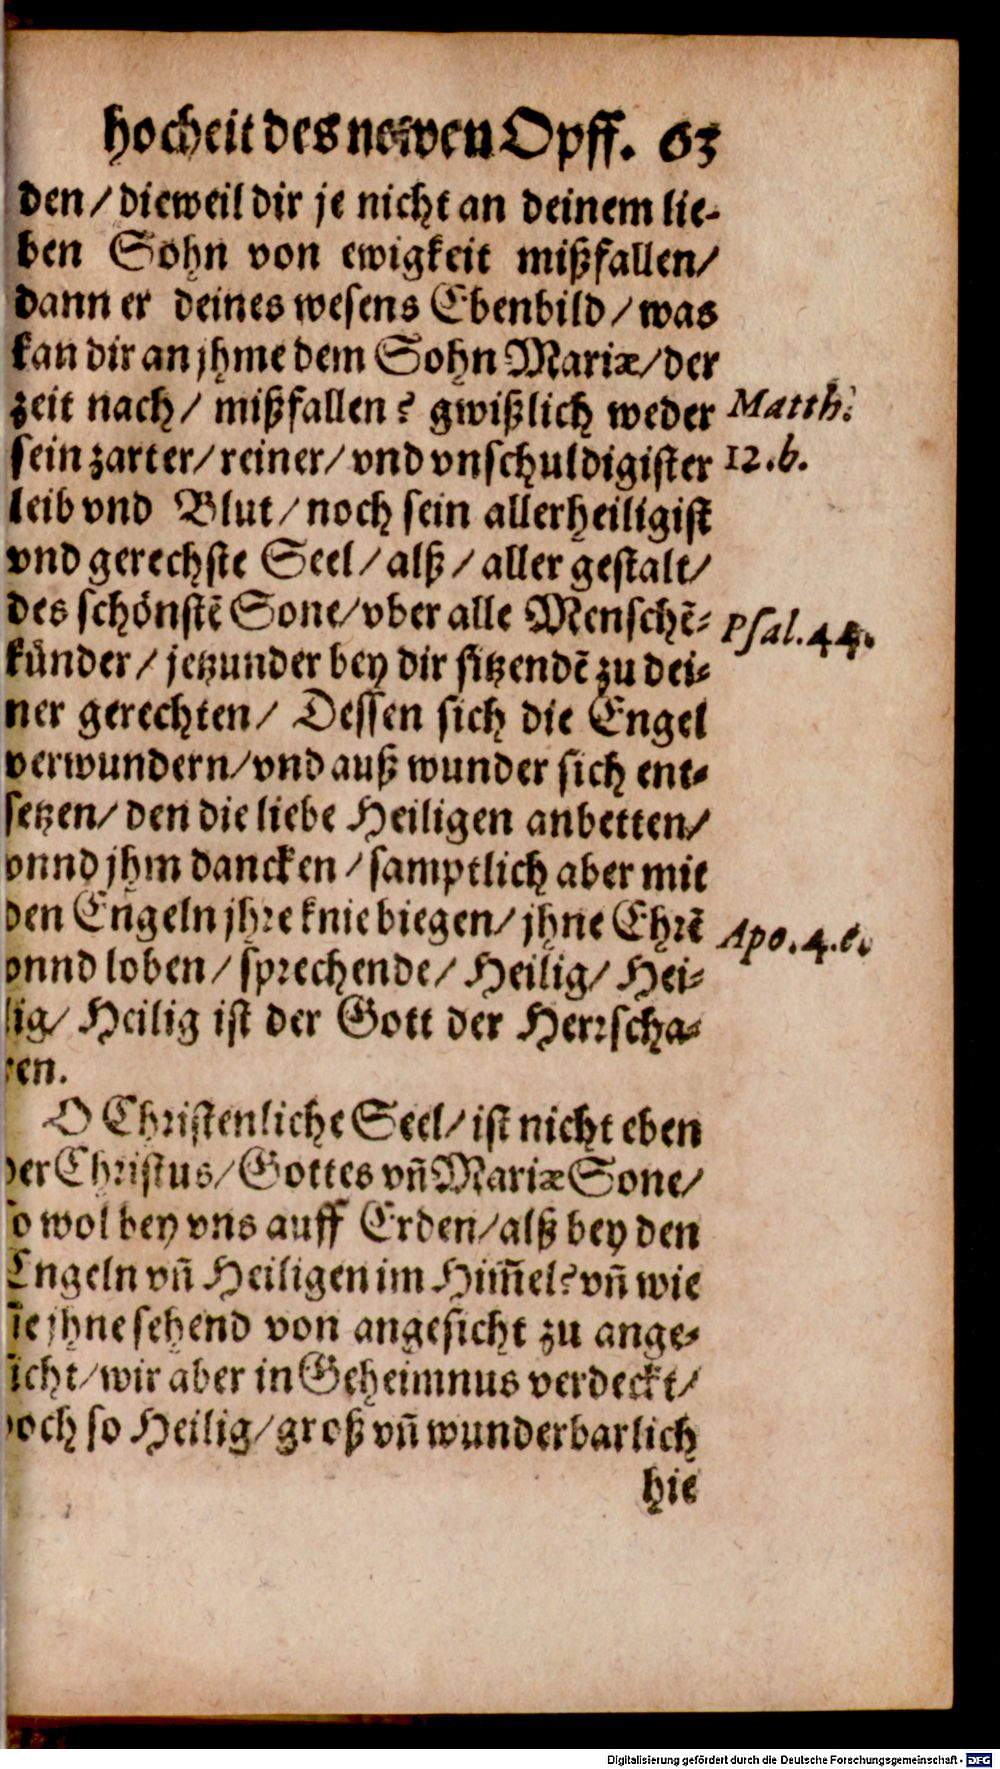 hocheit des newen Opff. 63
den / dieweil dir je nicht an deinem lie-
ben Sohn von ewigkeit mißfallen /
dann er deines wesens Ebenbild / was
kan dir an jhme dem Sohn Mariæ / der
zeit nach / mißfallen? gwißlich weder
Matth.
sein zarter / reiner / vnd vnschuldigister
12.b.
leib vnd Blut / noch sein allerheiligist
vnd gerechste Seel / alß / aller gestalt /
des schönstē Sone / vber alle Menschē-
Psal.44.
künder / jetzunder bey dir sitzendē zu dei-
ner gerechten / Dessen sich die Engel
verwundern / vnd auß wunder sich ent-
setzen / den die liebe Heiligen anbetten /
vnnd jhm dancken / samptlich aber mit
den Engeln jhre knie biegen / jhne Ehrē
Apo.4.
vnnd loben / sprechende / Heilig / Hei-
lig / Heilig ist der Gott der Herrscha-
ren.
O Christenliche Seel / ist nicht eben
der Christus / Gottes vñ Mariæ Sone /
so wol bey vns auff Erden / alß bey den
Engeln vñ Heiligen im Him̃el? vñ wie
sie jhne sehend von angesicht zu ange-
sicht / wir aber in Geheimnus verdeckt /
doch so Heilig / groß vñ wunderbarlich
hie
Digitalisierung gefördert durch die Deutsche Forschungsgemeinschaft - DFG